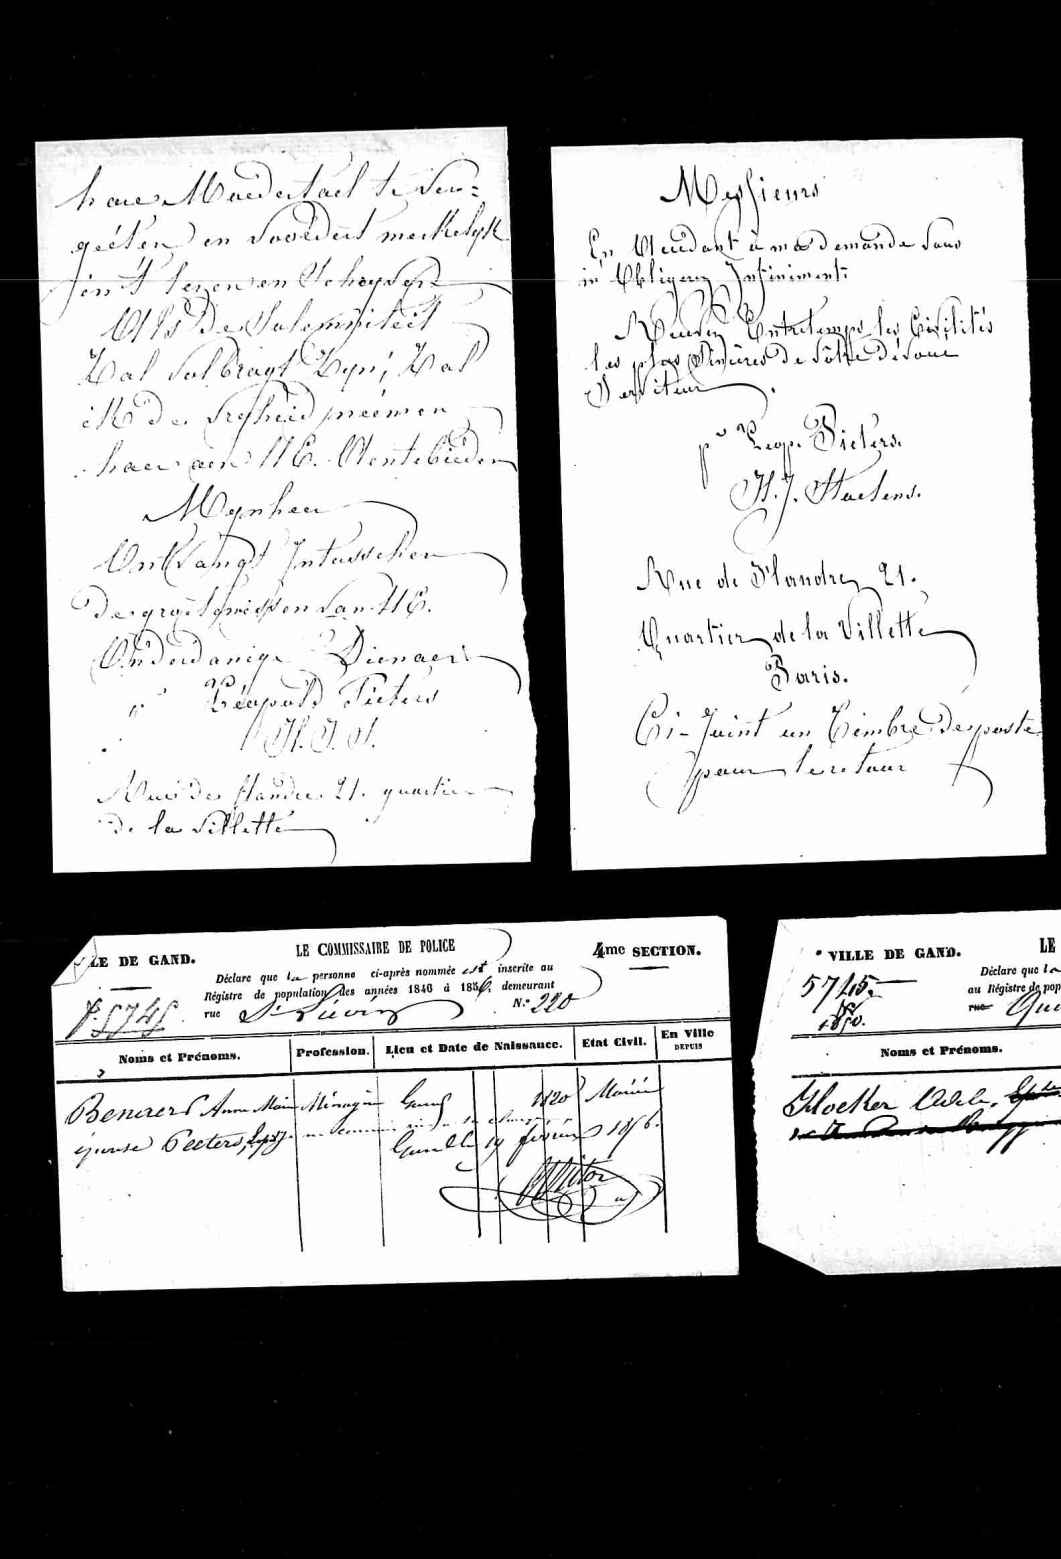 haer Moedertael te Ver=
geéten en Voorders merkelyk
in 't lezen en Schryven
Als de Solemniteit
Zal Volbragt Zyn, Zal
ik de Vryheid neémen
haer aen UE. Aentebieden
Mynheer
Ontvangt Intusschen
de groetenissen Van UE.
Onderdanige Dienaer
Léopold Pieters
H. J. S.
Rue de flandre 21. quartier
de la villette
Messieurs
En Attendant à ma demande Vous
m'Obligerez Infiniment
Recevez Entretemps les Civilités
les plus Sincères de Votre dévoué
Serviteur.
pr Leop. Pieters.
H. J. Staelens.
Rue de Flandre, 21.
Quartier de la Villette
Paris.
Ci-Joint un Timbre de poste
pour le retour
LE DE GAND.
LE COMMISSAIRE DE POLICE
4me SECTION.
Déclare que la personne ci-après nommée est inscrite au
Régistre de population des années 1846 à 1856, demeurant
5745
rue St Liévin N.° 220
Noms et Prénoms. Profession. Lieu et Date de Naissance. Etat Civil. En Ville DEPUIS
Anna Marie Ménagère Gand 1820 Mariée
épouse Peeters,
Gand le 19 février 1856.
VILLE DE GAND.
LE
5745
1850.
Déclare que la
au Régistre de pop
rue
Noms et Prénoms.